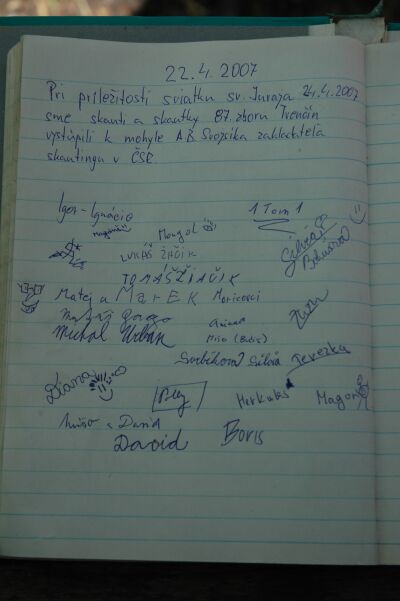 22.4.2007
Pri príležitosti sviatku sv. Juraja 24.4.2007
sme skauti a skautky 87. zboru Trenčín
vystúpili k mohyle A.B. Svojsíka zakladateľa
skautingu v ČSR
Igor - Ignácio
1 Tom 1
Mongol
LUKÁŠ ŽIAČIK
Silvia
Bohušová
TOMÁŠ ŽIAČIK
Matej a MAREK Moricovci
Michal Urbán
Miso
Sorbíková Silvia Terezka
Diana
Herkules
Magor
Mišo a David
David
Boris